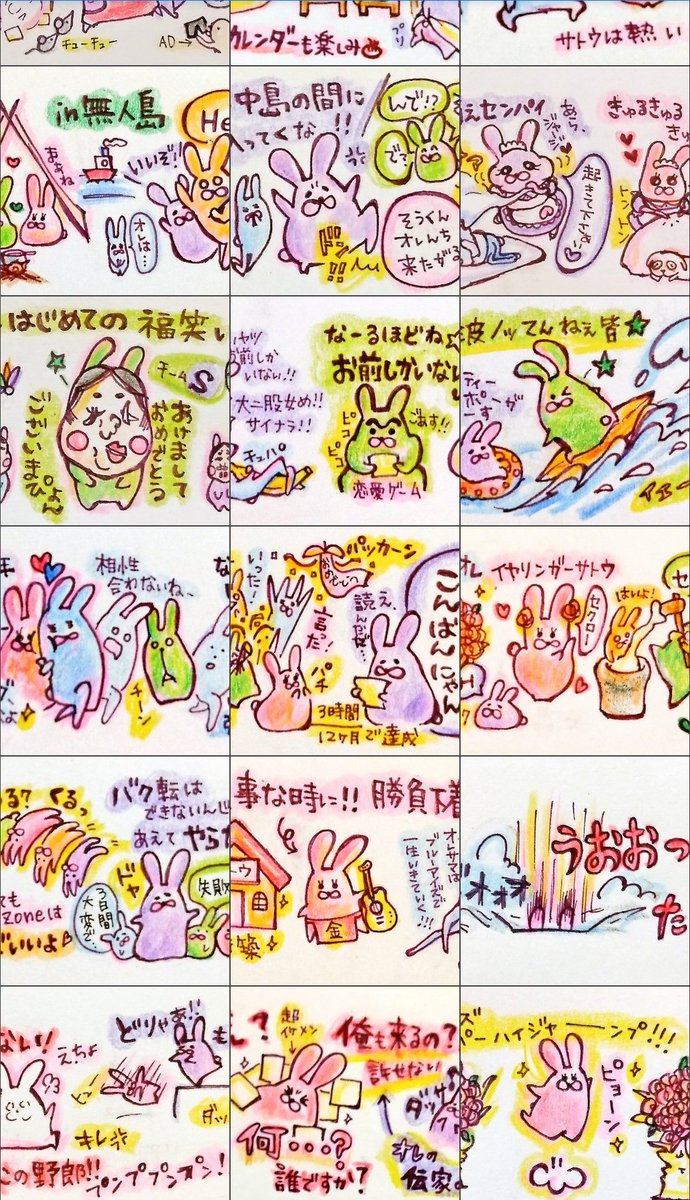 チューチュー
AD→
カレンダーも楽しみ
プリ
サトウは熱い
in無人島
He
いいぞ!
オレは…
中島の間に
入ってくな!!
んで!?
で?
ドン
!!
そうくん
オレんち
来たがる
えセンパイ
あら
起きて下さぁい
きゅるきゅる
トントン
はじめての福笑い
チームS
あけまして
おめでとう
ございまぴょん
前しか
いない!!
大二股女め!!
サイナラ!!
チュパ
なーるほどねぇ
お前しかいない
ピコ
ピコ
ごます!!
恋愛ゲーム
波ノッてんねぇ皆
ティー
ポーが
相性
合わないね、
チーン
いった!
パッカーン
おめでとう
言った!
読え、
パチ
こんばんにゃん
3時間
12ヶ月で達成
オレ
イヤリンガーサトウ
セクロー
はいよ!
る? くるっ
バク転は
できないんじ
あえてやらな
ドヤ
失敗
3日間
大変で、
ても
Zoneは
いいよ
事な時に!! 勝負下着
トウ
築
金
オレサマは
ブルーアイズで
一生いきていく!!!
うおおっ
オオオ
た
ない!
えちょ
どりゃあ!!
も
ダッ
キレ
この野郎!!
プンププンプン!
ん?
超
イケメン
俺も来るの?
許せない
ダッ
何…?
誰ですか?
オレの
伝家
ズ
ーパーハイジャーーンプ!!!
ピョーン